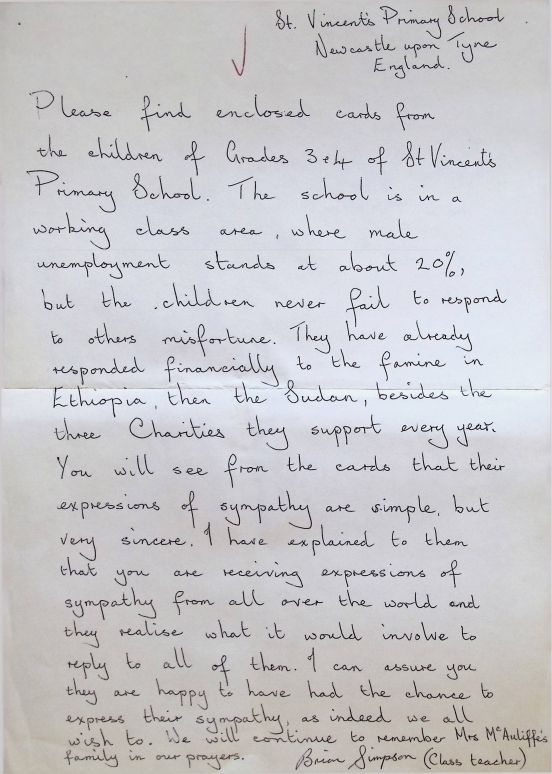 St. Vincent's Primary School
Newcastle upon Tyne
England.
Please find enclosed cards from
the children of Grades 3+4 of St Vincent's
Primary School. The school is in a
working class area, where male
unemployment stands at about 20%,
but the children never fail to respond
to others misfortune. They have already
responded financially to the famine in
Ethiopia, then the Sudan, besides the
three Charities they support every year.
You will see from the cards that their
expressions of sympathy are simple, but
very sincere. I have explained to them
that you are receiving expressions of
sympathy from all over the world and
they realise what it would involve to
reply to all of them. I can assure you
they are happy to have had the chance to
express their sympathy, as indeed we all
wish to. We will continue to remember Mrs McAuliffe's
family in our prayers. Brian Simpson (Class teacher)